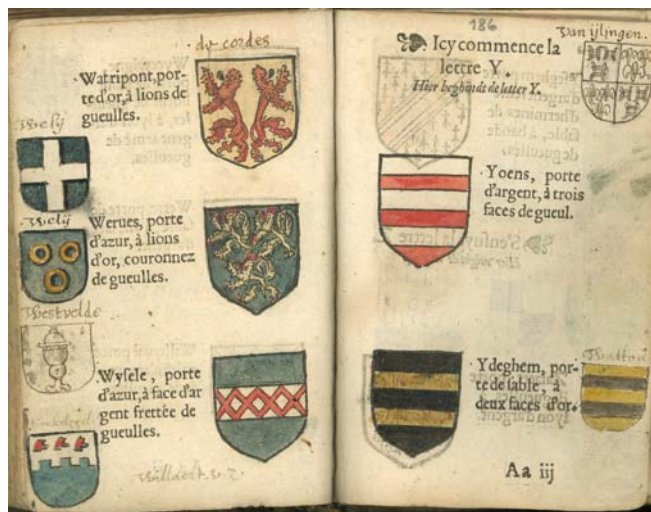 du cordes
Watripont, por-
te d'or, à lions de
gueulles.
Welij
Welij
Werues, porte
d'azur, à lions
d'or, couronnez
de gueulles.
Westvelde
Wysele, porte
d'azur, à face d'ar
gent frettée de
gueulles.
186
Icy commence la
lettre Y.
Hier beghindt de letter Y.
Van ijlingen.
Yoens, porte
d'argent, à trois
faces de gueul.
Ydeghem, por-
te de sable, à
deux faces d'or.
Watton
Aa iij